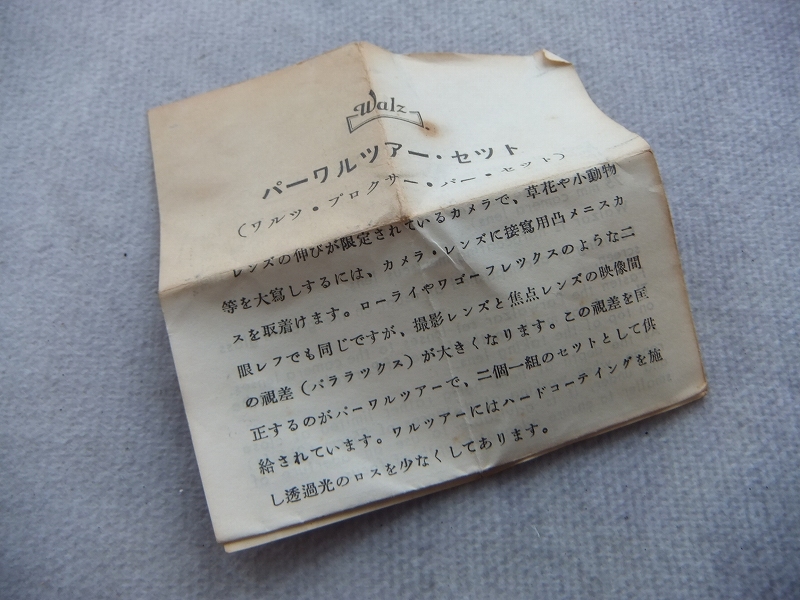 Walz
パーワルツアー・セット
（ワルツ・プロクサー・パー・セット）
レンズの伸びが限定されているカメラで、草花や小動物
等を大寫しするには、カメラ・レンズに接寫用凸メニスカ
スを取着けます。ローライやワゴーフレツクスのような二
眼レフでも同じですが、撮影レンズと焦点レンズの映像間
の視差（パララツクス）が大きくなります。この視差を匡
正するのがパーワルツアーで、二個一組のセットとして供
給されています。ワルツアーにはハードコーティングを施
し透過光のロスを少なくしてあります。